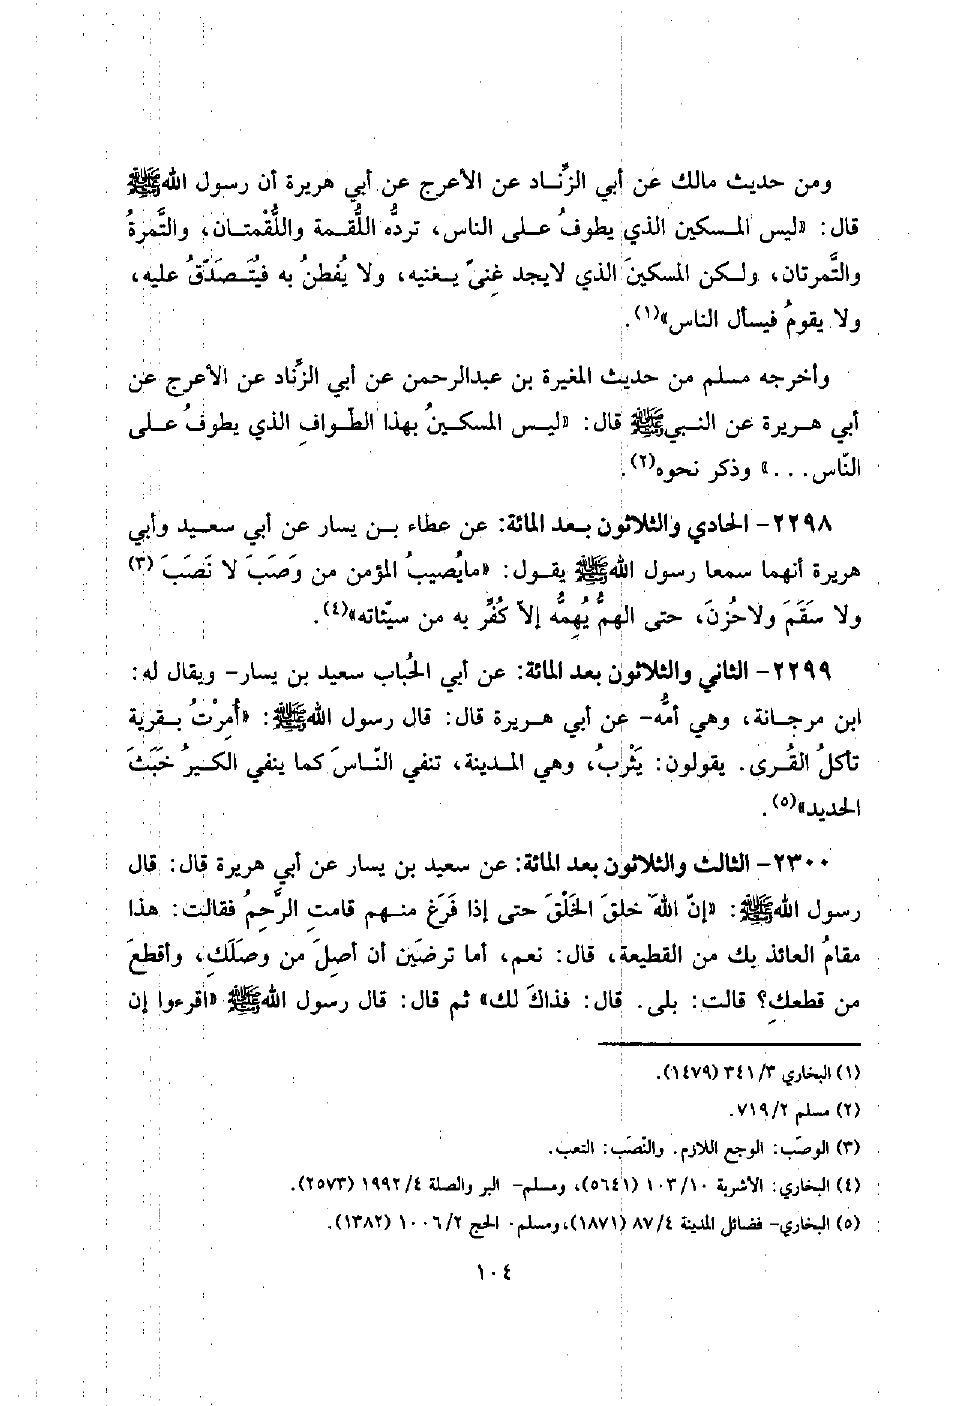 ومن حديث مالك عن أبي الزِّناد عن الأعرج عن أبي هريرة أن رسول الله ﷺ
قال: «ليس المسكين الذي يطوفُ على الناس، تردُّه اللُّقمة واللُّقْمتان، والتَّمرةُ
والتَّمرتان، ولكن المسكينَ الذي لايجد غِنىً يغنيه، ولا يُفطنُ به فيُتَصَدَّقُ عليه،
ولا يقومُ فيسأل الناس»(١).
وأخرجه مسلم من حديث المغيرة بن عبدالرحمن عن أبي الزِّناد عن الأعرج عن
أبي هريرة عن النبي ﷺ قال: «ليس المسكينُ بهذا الطّوافِ الذي يطوفُ على
النّاس...» وذكر نحوه(٢).
٢٢٩٨- الحادي والثلاثون بعد المائة: عن عطاء بن يسار عن أبي سعيد وأبي
هريرة أنهما سمعا رسول الله ﷺ يقول: «مايُصيبُ المؤمن من وَصَبَ لا نَصَبَ (٣)
ولا سَقَمَ ولاحُزنَ، حتى الهمُّ يُهِمُّه إلاّ كُفِّر به من سيّئاته»(٤).
٢٢٩٩- الثاني والثلاثون بعد المائة: عن أبي الحُباب سعيد بن يسار- ويقال له:
ابن مرجانة، وهي أمُّه- عن أبي هريرة قال: قال رسول الله ﷺ: «أُمِرْتُ بقرية
تأكلُ القُرى. يقولون: يَثْربُ، وهي المدينة، تنفي النّاسَ كما ينفي الكيرُ خَبَثَ
الحديد»(٥).
٢٣٠٠- الثالث والثلاثون بعد المائة: عن سعيد بن يسار عن أبي هريرة قال: قال
رسول الله ﷺ: «إنّ اللهَ خلقَ الخَلْقَ حتى إذا فَرَغَ منهم قامتِ الرَّحِمُ فقالت: هذا
مقامُ العائذ بك من القطيعة، قال: نعم، أما ترضَين أن أصِلَ من وصلَكِ، وأقطعَ
من قطعكِ؟ قالت: بلى. قال: فذاكَ لك» ثم قال: قال رسول الله ﷺ «اقرءوا إن
(١) البخاري ٣/ ٣٤١ (١٤٧٩).
(٢) مسلم ٢/ ٧١٩.
(٣) الوصَب: الوجع اللازم. والنّصَب: التعب.
(٤) البخاري: الأشربة ١٠/ ١٠٣ (٥٦٤١)، ومسلم- البر والصلة ٤/ ١٩٩٢ (٢٥٧٣).
(٥) البخاري- فضائل المدينة ٤/ ٨٧ (١٨٧١)، ومسلم- الحج ٢/ ١٠٠٦ (١٣٨٢).
١٠٤